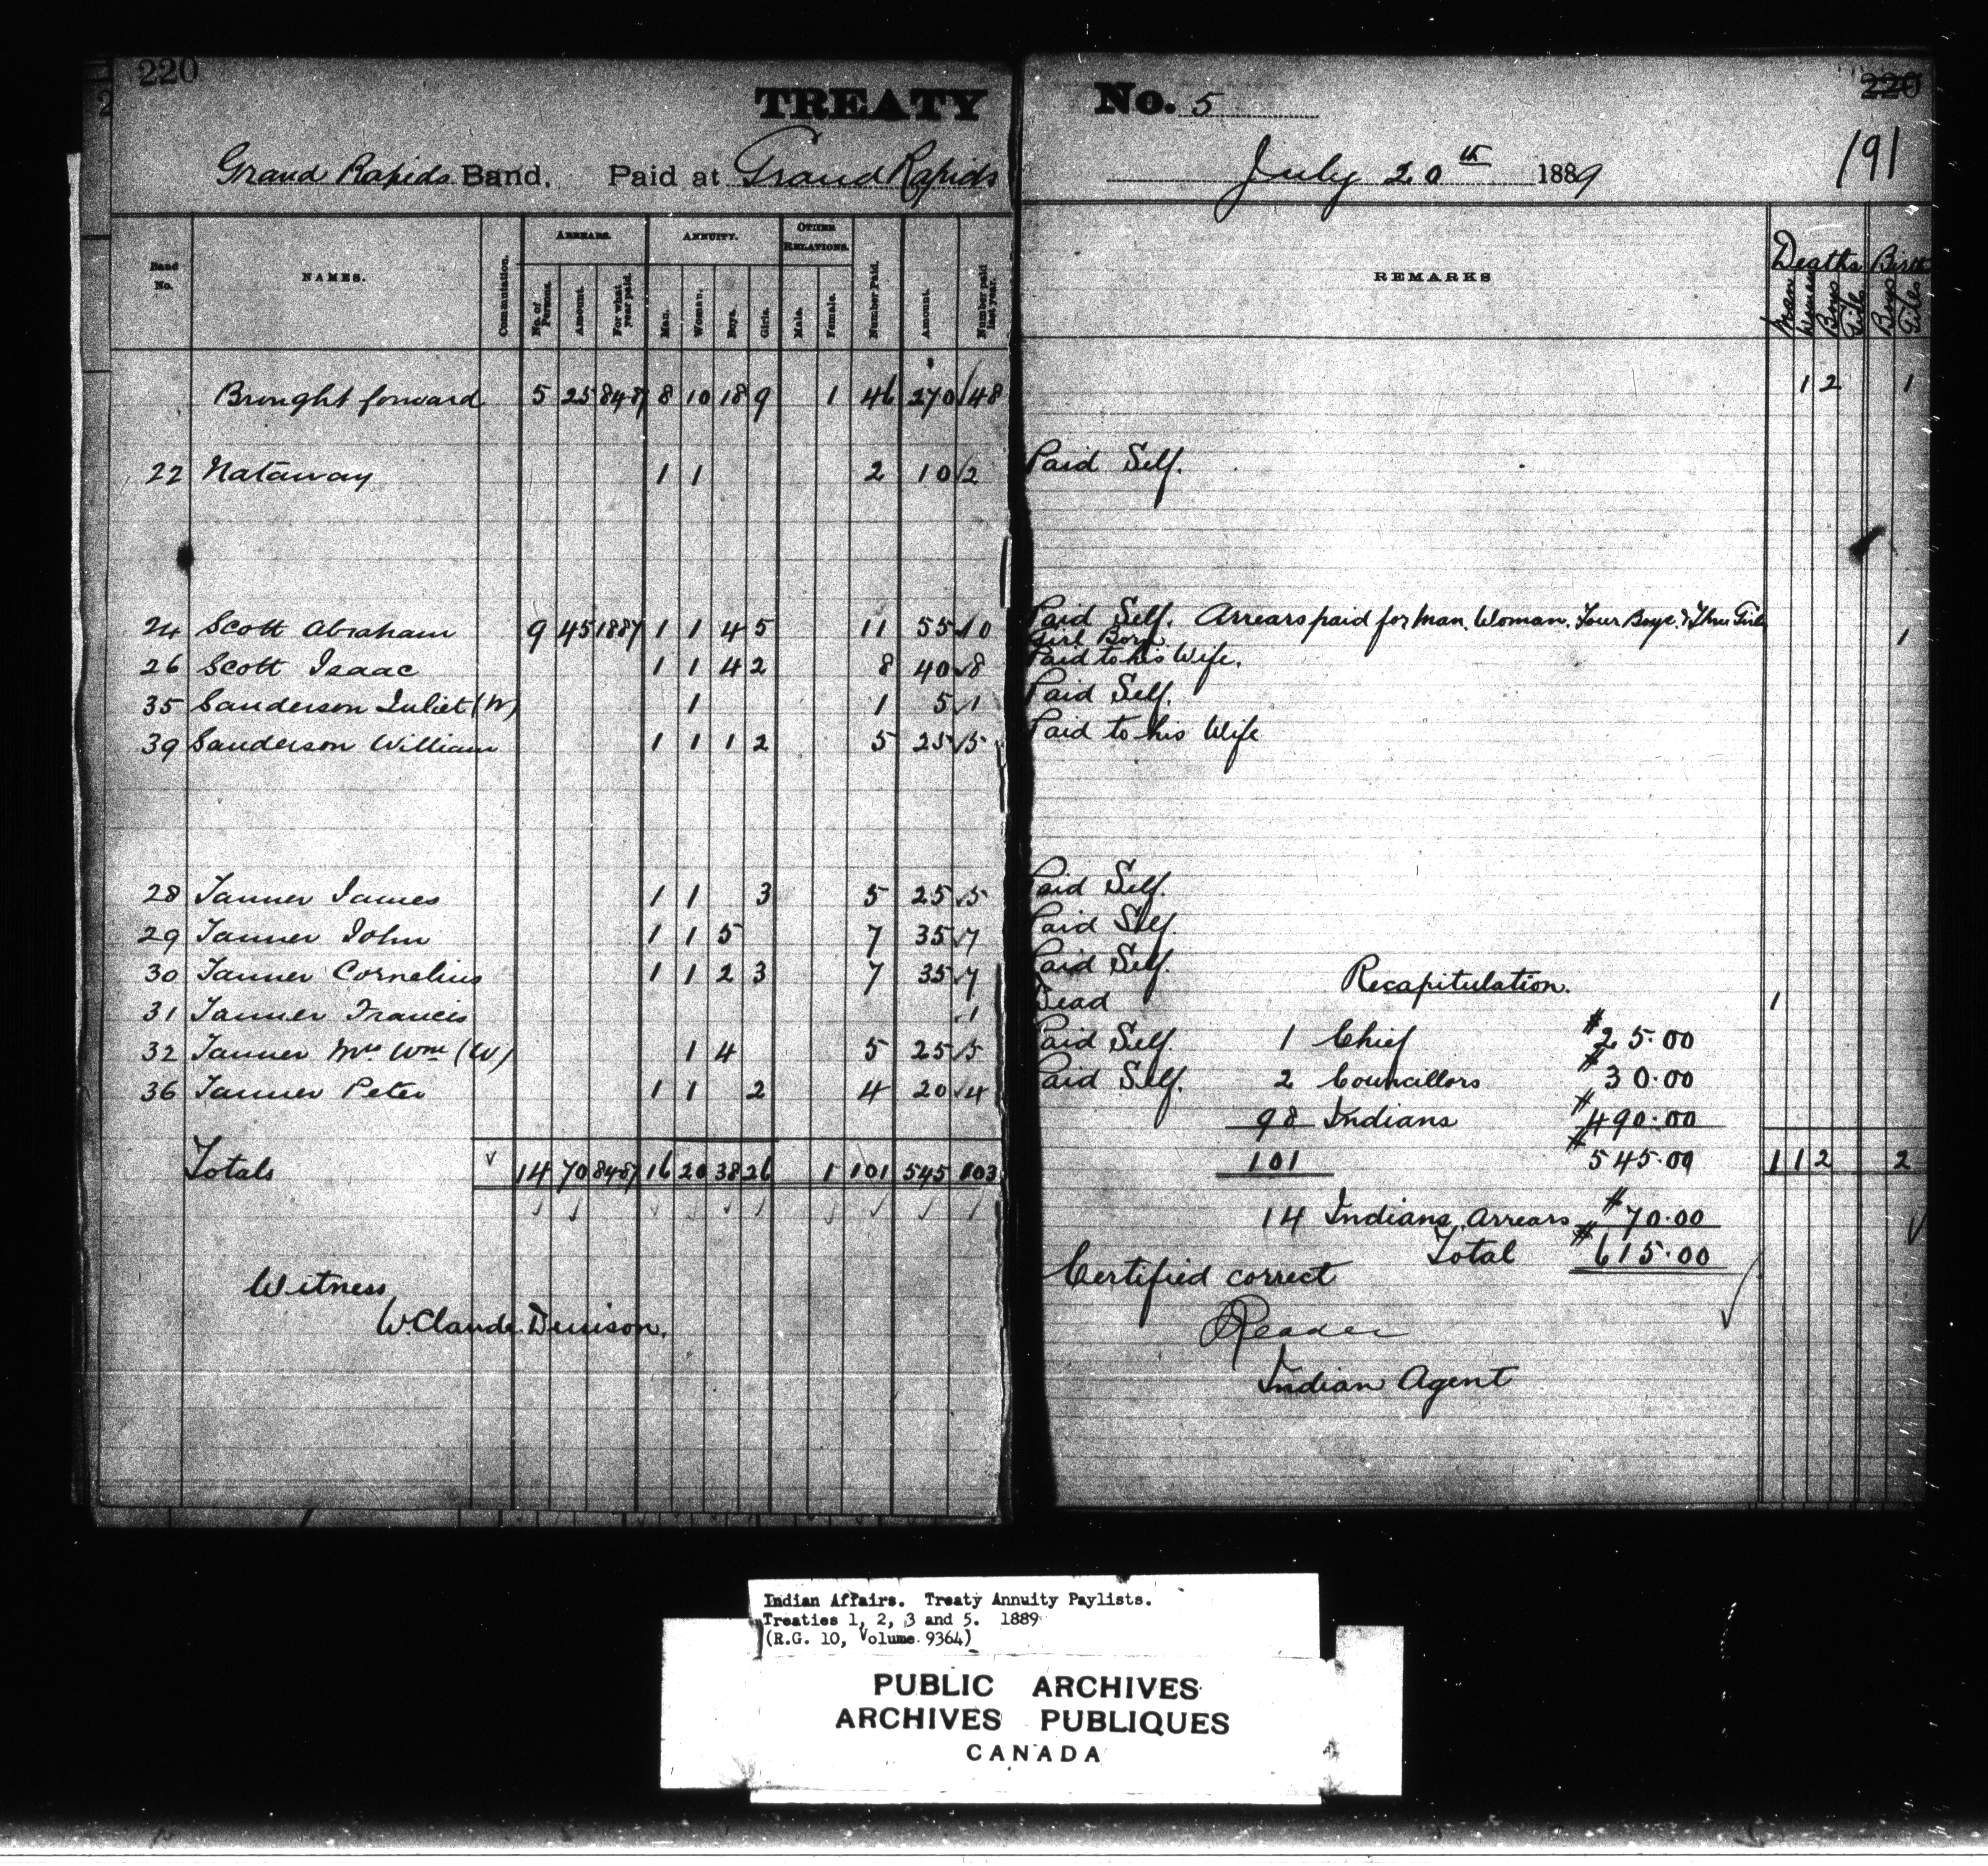 220
TREATY No. 5 220
191
Grand Rapids Band. Paid at Grand Rapids July 20th 1889
Band No. NAMES. Commutation. ARREARS. No. of Persons. Amount. For what year paid. ANNUITY. Man. Woman. Boys. Girls. OTHER RELATIONS. Male. Female. Number Paid. Amount. Number paid last year. REMARKS Deaths Man Women Boys Girls Births Boys Girls
Brought forward 5 25 84-87 8 10 18 9 1 46 270 48 1 2 1
22 Nataway 1 1 2 10 2 Paid Self.
24 Scott Abraham 9 45 1887 1 1 4 5 11 55 10 Paid Self. Arrears paid for Man, Woman, Four Boys & Three Girls
Girl Born 1
26 Scott Isaac 1 1 4 2 8 40 8 Paid to his Wife.
35 Sanderson Juliet (W) 1 1 5 1 Paid Self.
39 Sanderson William 1 1 1 2 5 25 5 Paid to his Wife
28 Tanner James 1 1 3 5 25 5 Paid Self.
29 Tanner John 1 1 5 7 35 7 Paid Self.
30 Tanner Cornelius 1 1 2 3 7 35 7 Paid Self.
Recapitulation.
31 Tanner Francis 1 Dead 1
32 Tanner Mrs Wm (W) 1 4 5 25 5 Paid Self. 1 Chief $25.00
36 Tanner Peter 1 1 2 4 20 4 Paid Self. 2 Councillors $30.00
98 Indians $490.00
Totals 14 70 84-87 16 20 38 26 1 101 545 103 101 $545.00 1 1 2 2
14 Indians, Arrears $70.00
Total $615.00
Witness Certified correct
W. Claude Denison. Reader
Indian Agent
Indian Affairs. Treaty Annuity Paylists.
Treaties 1, 2, 3 and 5. 1889
(R.G. 10, Volume 9364)
PUBLIC ARCHIVES
ARCHIVES PUBLIQUES
CANADA